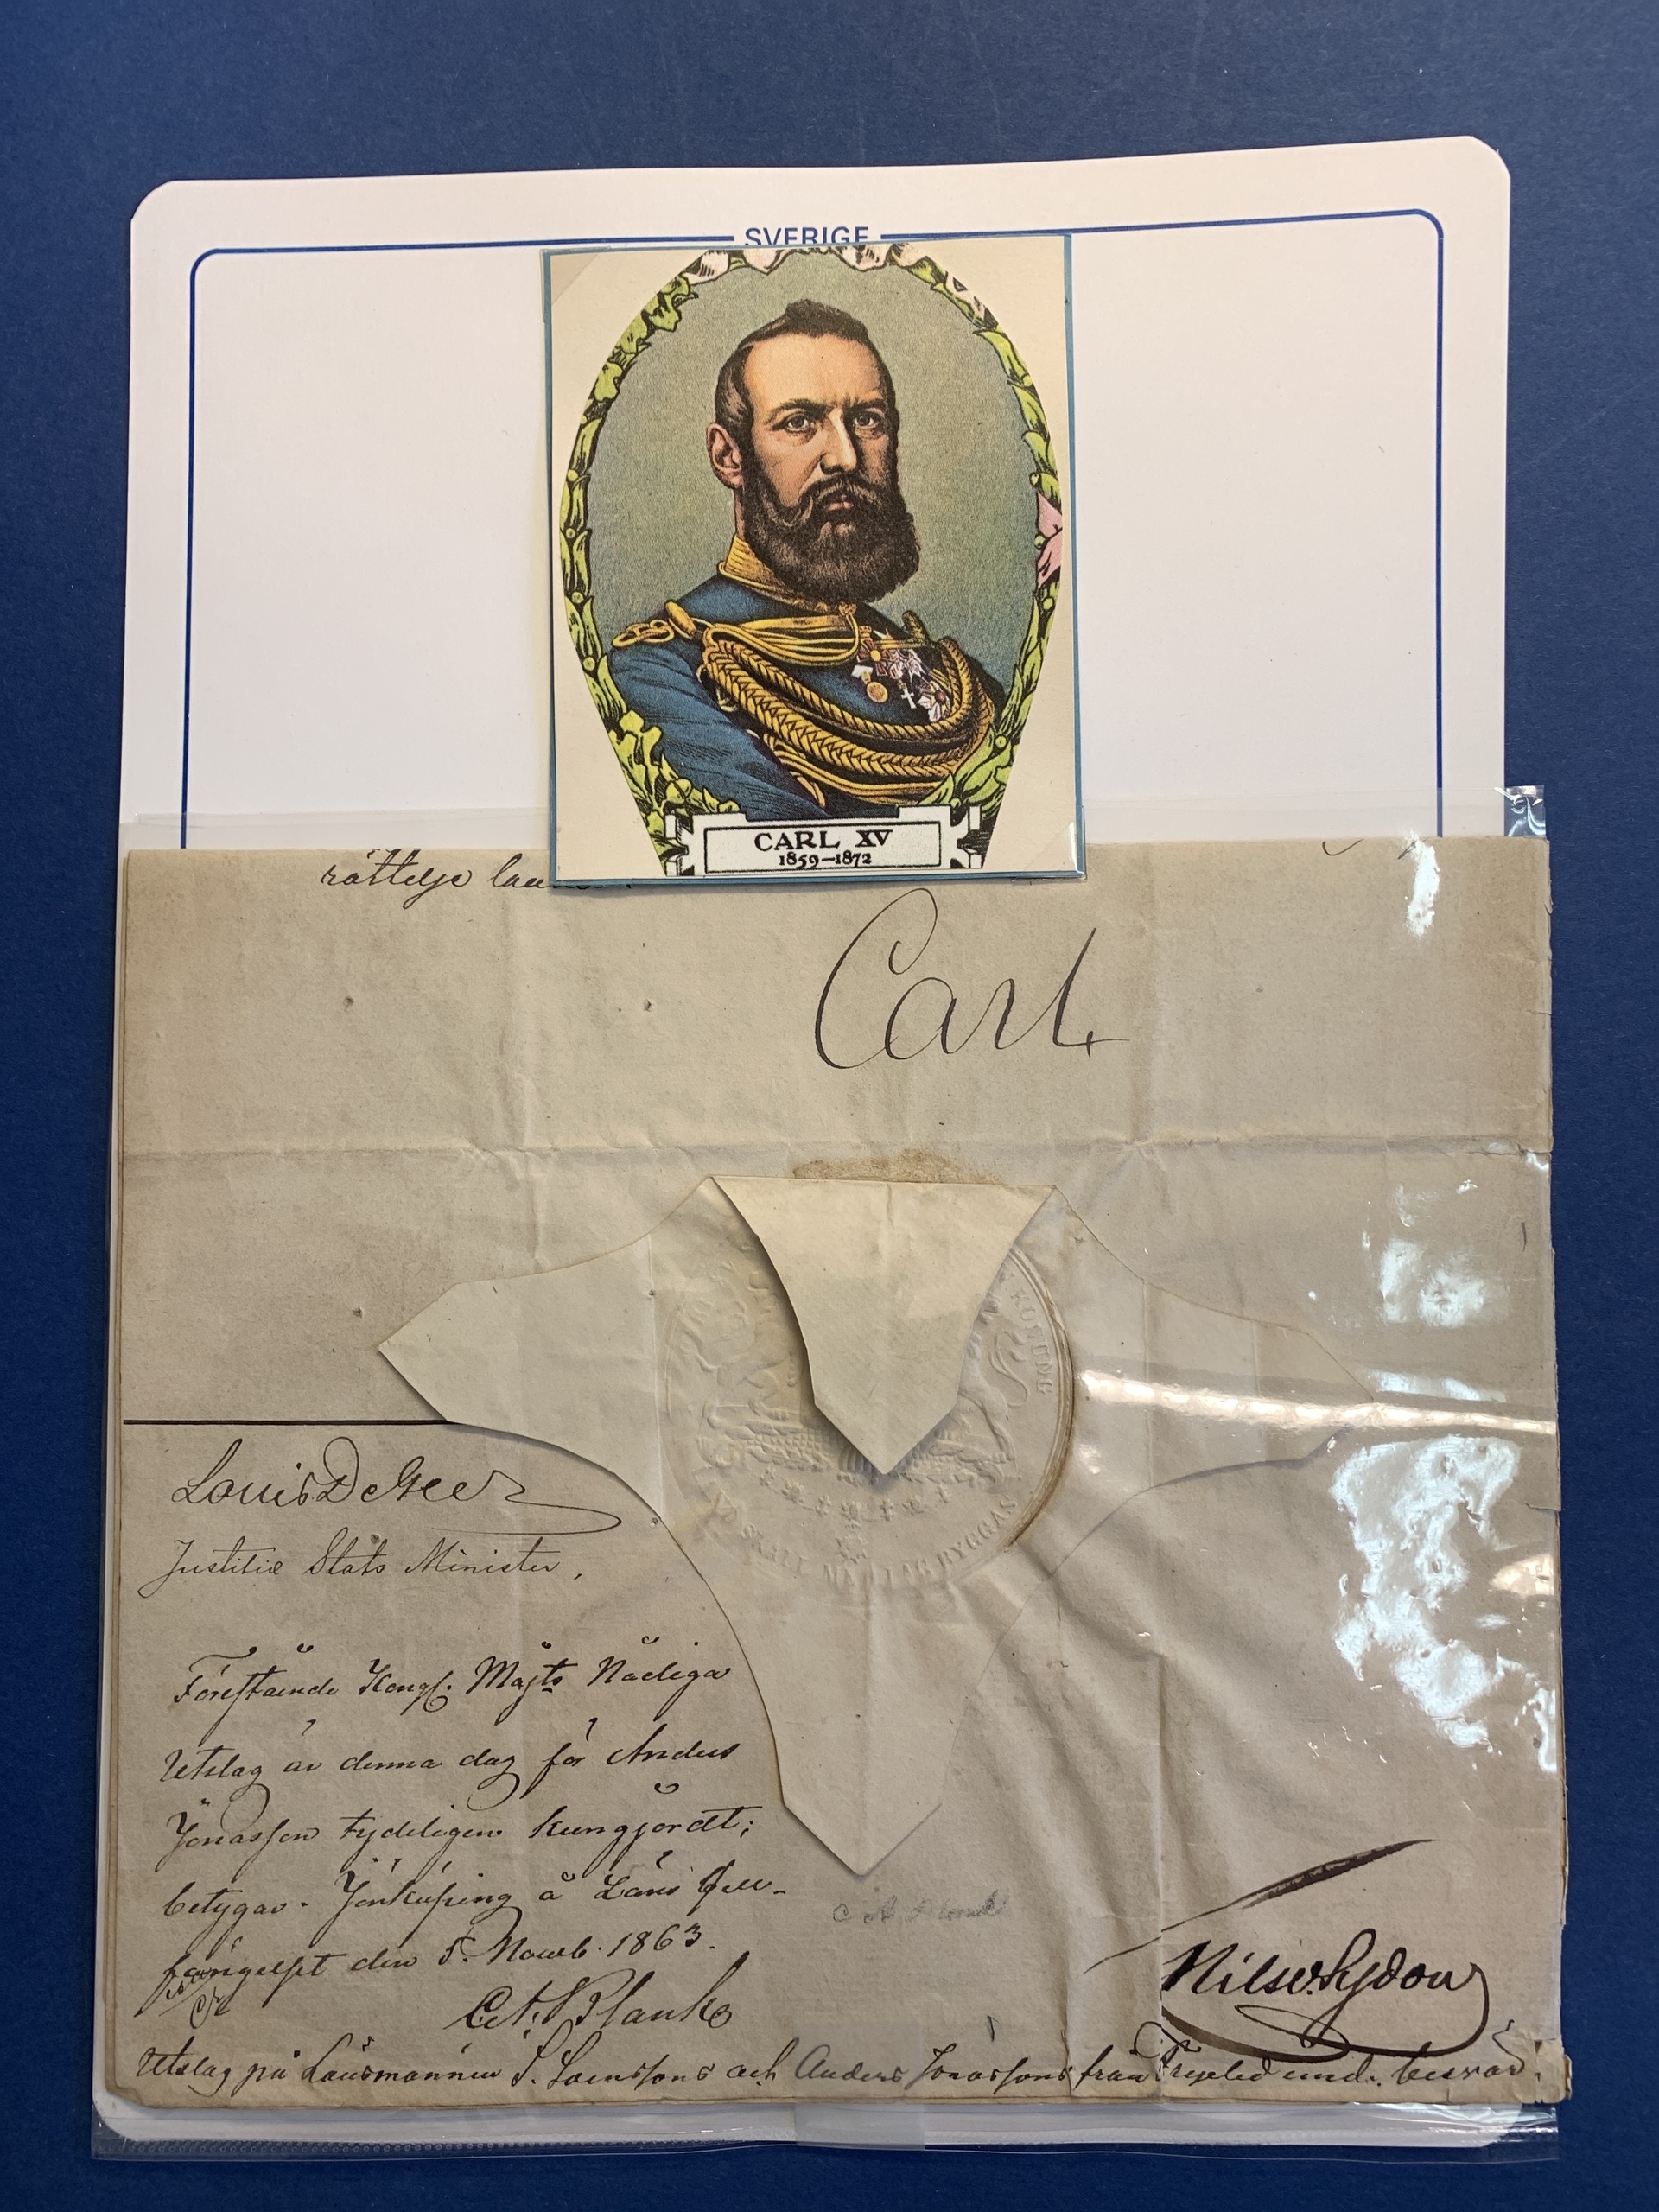 SVERIGE
CARL XV
1859–1872
rättelse
Carl
KONUNG
SKALL MED LAG BYGGAS
Louis De Geer
Justitiæ Stats Minister.
Förestående Kongl. Majts Nådiga
Utslag är denna dag för Anders
Jönasson tydeligen kungjordt;
betygar. Jönköping å Läns
fängelset den 5. Novemb. 1863.
C. A. Planck
Nils
Utslag på Länsmannen S. och Anders Jonassons från besvär.